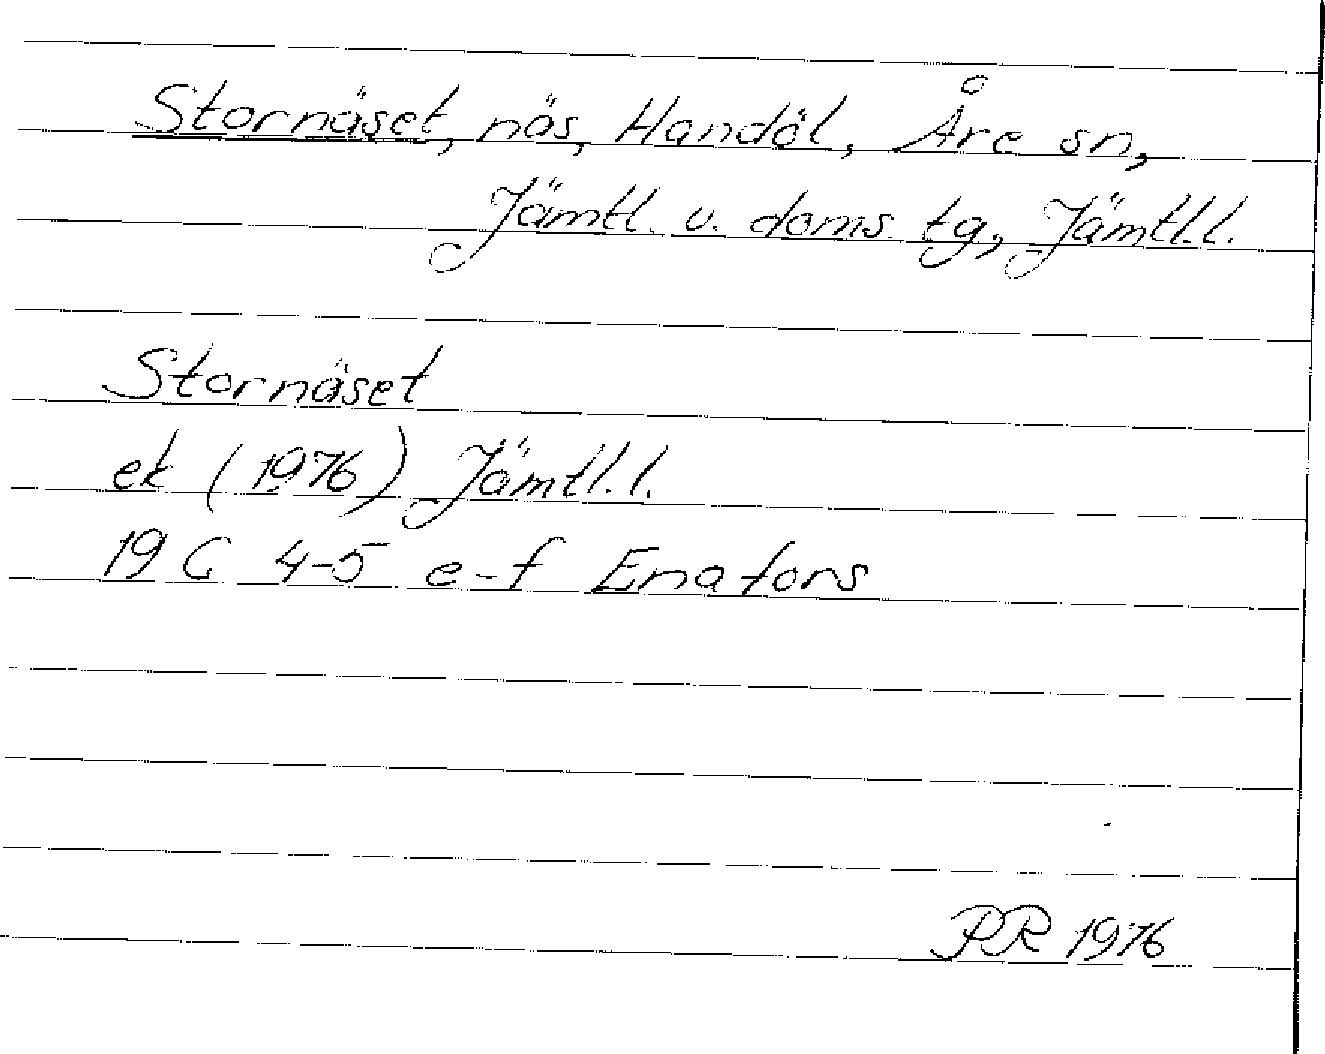 Stornäset, näs, Handöl, Åre sn,
Jämtl. v. doms. tg, Jämtl.l.
Stornäset
ek (1976) Jämtl.l.
19 C 4-5 e-f Enafors
PR 1976